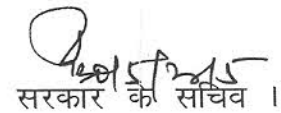 सरकार के सचिव ।